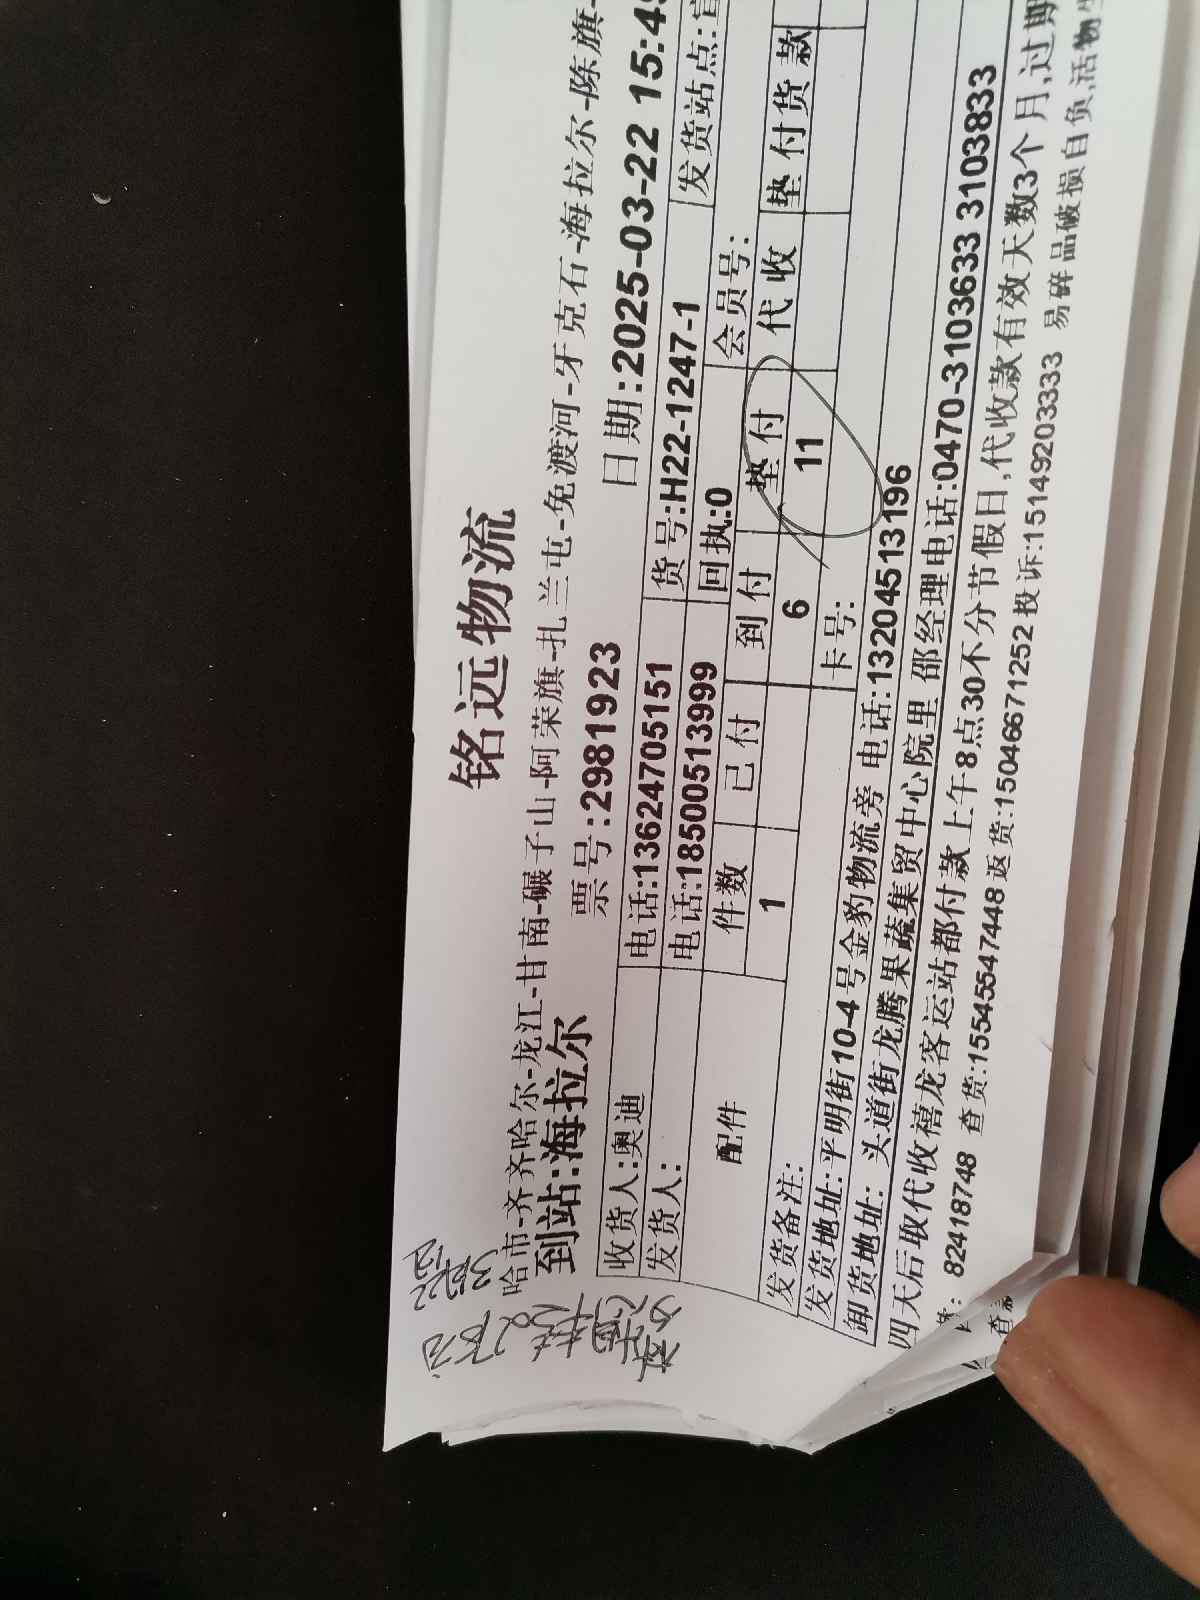 铭远物流
哈市-齐齐哈尔-龙江-甘南-碾子山-阿荣旗-扎兰屯-免渡河-牙克石-海拉尔-陈旗-
到站:海拉尔 票号:2981923 日期:2025-03-22 15:4
收货人:奥迪 电话:13624705151 货号:H22-1247-1 发货站点:宣
发货人: 电话:18500513999 回执:0 会员号:
配件 件数 已付 到付 垫付 代收 垫付货款
1 6 11
发货备注: 卡号:
发货地址:平明街10-4号金豹物流旁 电话:13204513196
卸货地址: 头道街龙腾果蔬集贸中心院里 邵经理电话:0470-3103633 3103833
四天后取代收禧龙客运站都付款上午8点30不分节假日,代收款有效天数3个月,过期
82418748 查货:15545547448返货:15046671252投诉:15149203333 易碎品破损自负,活物生